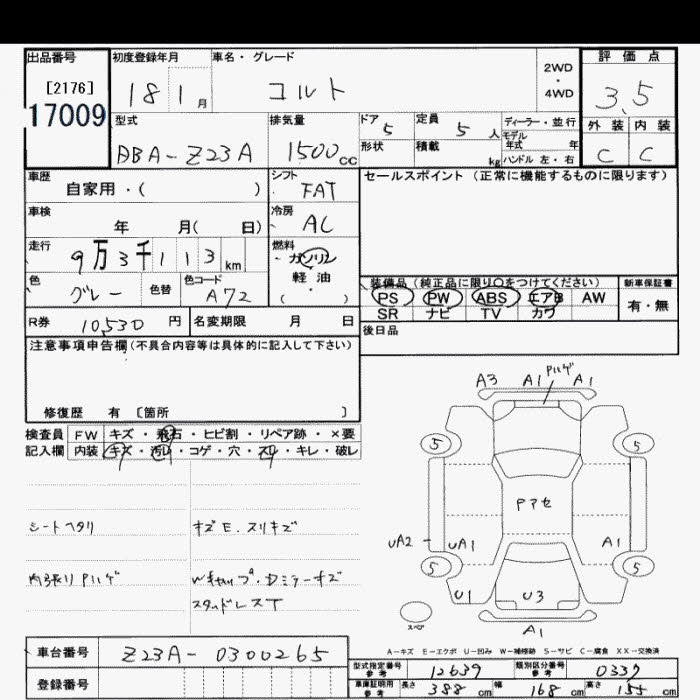 出品番号 初度登録年月 車名・グレード 2WD ・ 4WD 評価点
[2176] 18 1月 コルト 3.5
17009
型式 排気量 ドア 定員 ディーラー・並行 外装 内装
DBA-Z23A 1500cc 5 5人 モデル年式 年 C C
形状 積載 kg ハンドル 左・右
車歴 シフト セールスポイント(正常に機能するものに限ります)
自家用・( ) FAT
車検 冷房
年 月( 日) AC
走行 燃料
9万3千113km ガソリン
軽・油
色 色替 色コード ( ・ ) 装備品(純正品に限り○をつけてください) 新車保証書
グレー A72 PS PW ABS エアB AW 有・無
SR ナビ TV カワ
R券 10,530円 名変期限 月 日 後日品
注意事項申告欄(不具合内容等は具体的に記入して下さい)
修復歴 有 [箇所 ]
検査員 FW キズ・飛石・ヒビ割・リペア跡・×要
記入欄 内装 キズ・汚レ・コゲ・穴・スリ・キレ・破レ
シートヘタリ キズE.スリキズ
内張りPハゲ Wキャップ・Dミラーキズ
スタッドレスT
A3 A1 Pハゲ A1
5 5
Pアセ
UA2 UA1 A1
5 5
U1 U3
スペア
A1
A-キズ E-エクボ U-凹み W-補修跡 S-サビ C-腐食 XX-交換済
車台番号 Z23A-0300265
型式指定番号 参考 12639 類別区分番号 参考 0337
登録番号
車庫証明用 参考 長さ 388cm 幅 168cm 高さ 155cm